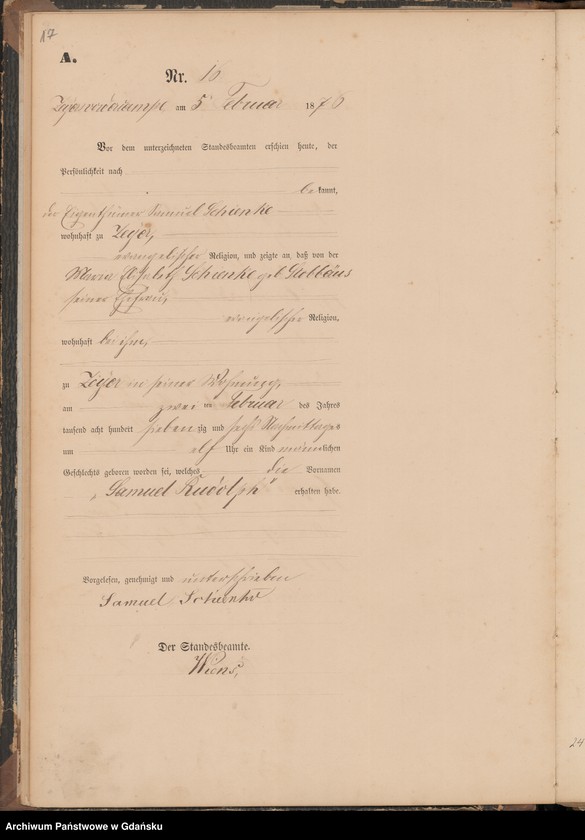 17
A.
Nr. 16
Zeyersvorderkampe am 5 Februar 1876
Vor dem unterzeichneten Standesbeamten erschien heute, der
Persönlichkeit nach
bekannt,
der Eigenthümer Samuel Schienke
wohnhaft zu Zeyer,
evangelischer Religion, und zeigte an, daß von der
Maria Elisabeth Schienke geb
seiner Ehefrau,
evangelischer Religion,
wohnhaft bei ihm,
zu Zeyer in seiner Wohnung,
am zwei ten Februar des Jahres
tausend acht hundert sieben zig und sechs Nachmittags
um elf Uhr ein Kind männlichen
Geschlechts geboren worden sei, welches die Vornamen
„Samuel Rudolph“ erhalten habe.
Vorgelesen, genehmigt und unterschrieben
Samuel Schienke
Der Standesbeamte.
Wiens,
24
Archiwum Państwowe w Gdańsku